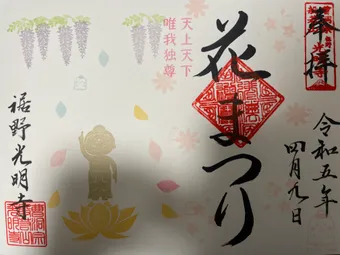 奉拝
令和五年
四月九日
花まつり
天上天下
唯我独尊
裾野光明寺